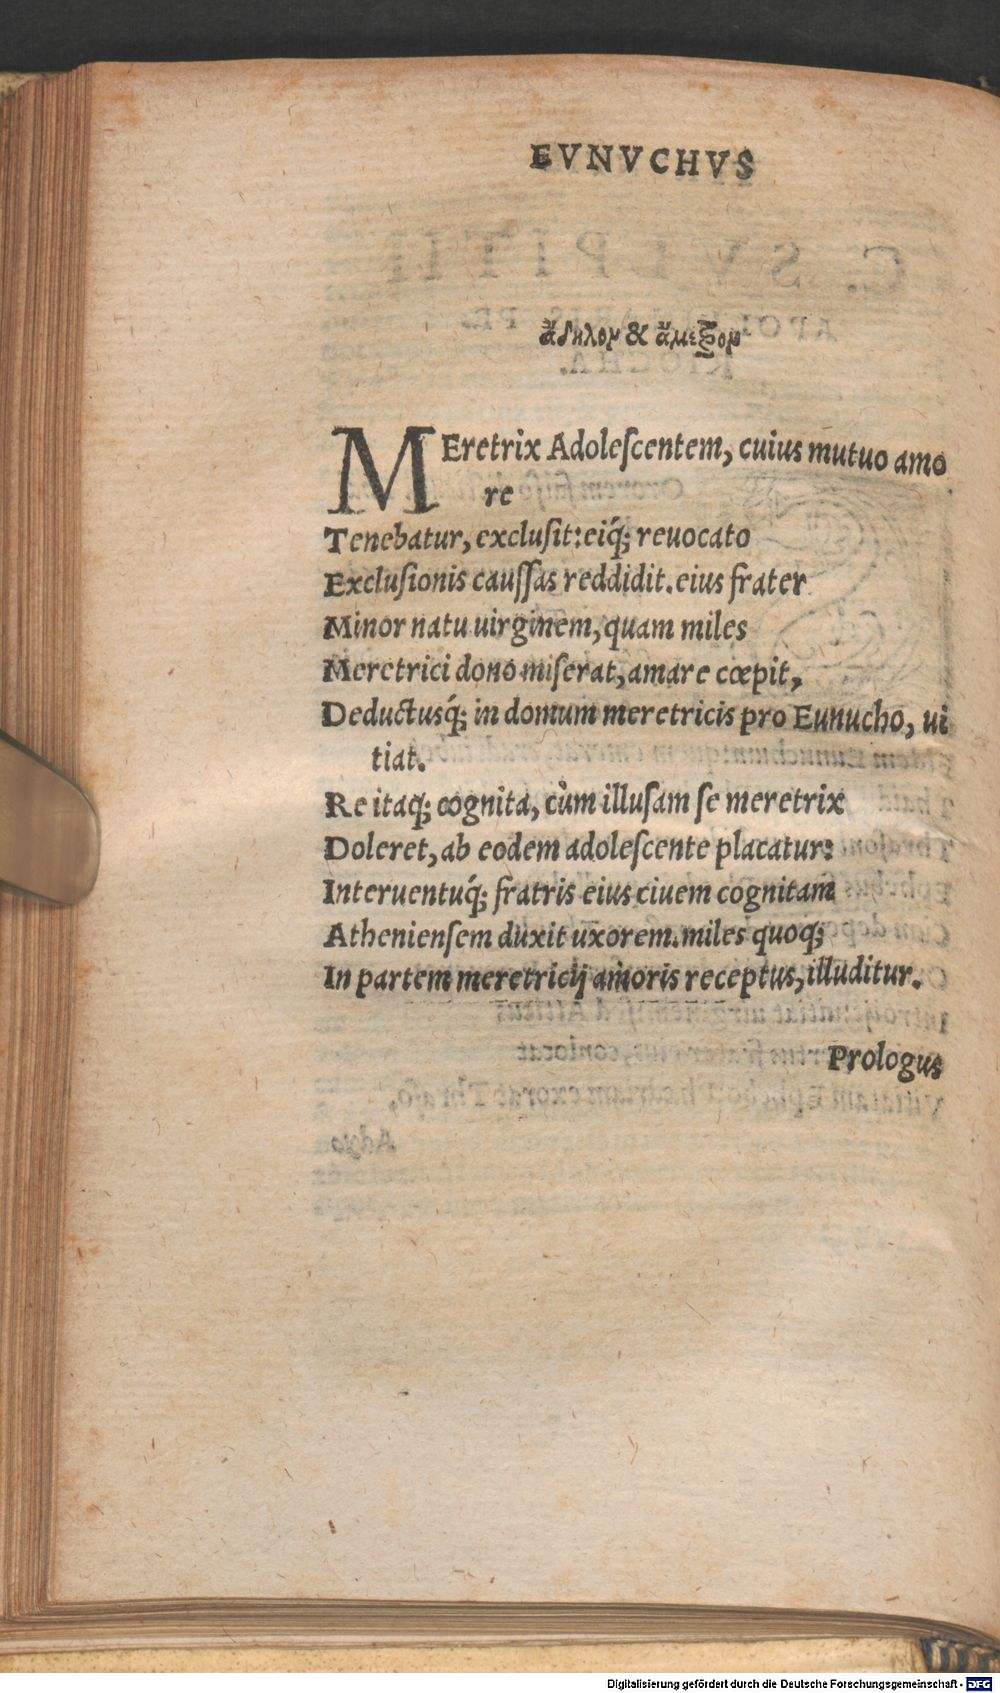 EVNVCHVS
ἄδηλον & ἄμετρον
MEretrix Adoleſcentem, cuius mutuo amo
re
Tenebatur, excluſit: eiq́; reuocato
Excluſionis cauſſas reddidit. eius frater
Minor natu uirginem, quam miles
Meretrici dono miſerat, amare cœpit,
Deductusq́; in domum meretricis pro Eunucho, ui
tiat.
Re itaq; cognita, cùm illuſam ſe meretrix
Doleret, ab eodem adoleſcente placatur:
Interuentuq́; fratris eius ciuem cognitam
Athenienſem duxit uxorem. miles quoq;
In partem meretricij amoris receptus, illuditur.
Prologus
Digitalisierung gefördert durch die Deutsche Forschungsgemeinschaft - DFG